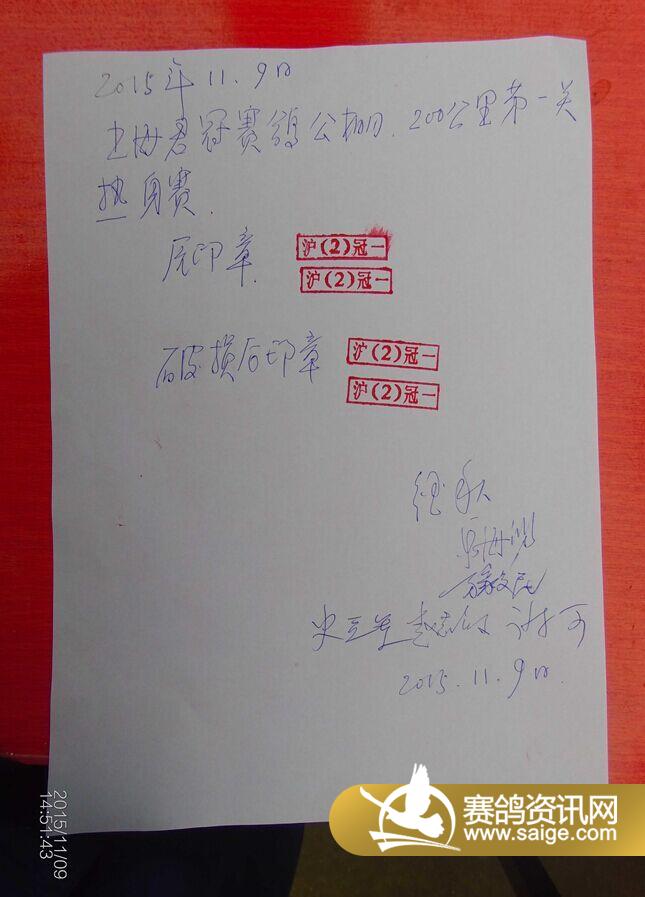 2015年11.9日
上海君冠赛鸽公棚.200公里第一关
热身赛.
原印章.
沪(2)冠一
沪(2)冠一
破损后印章
沪(2)冠一
沪(2)冠一
2015.11.9日.
2015/11/09
14:51:43
赛鸽资讯网
www.saige.com